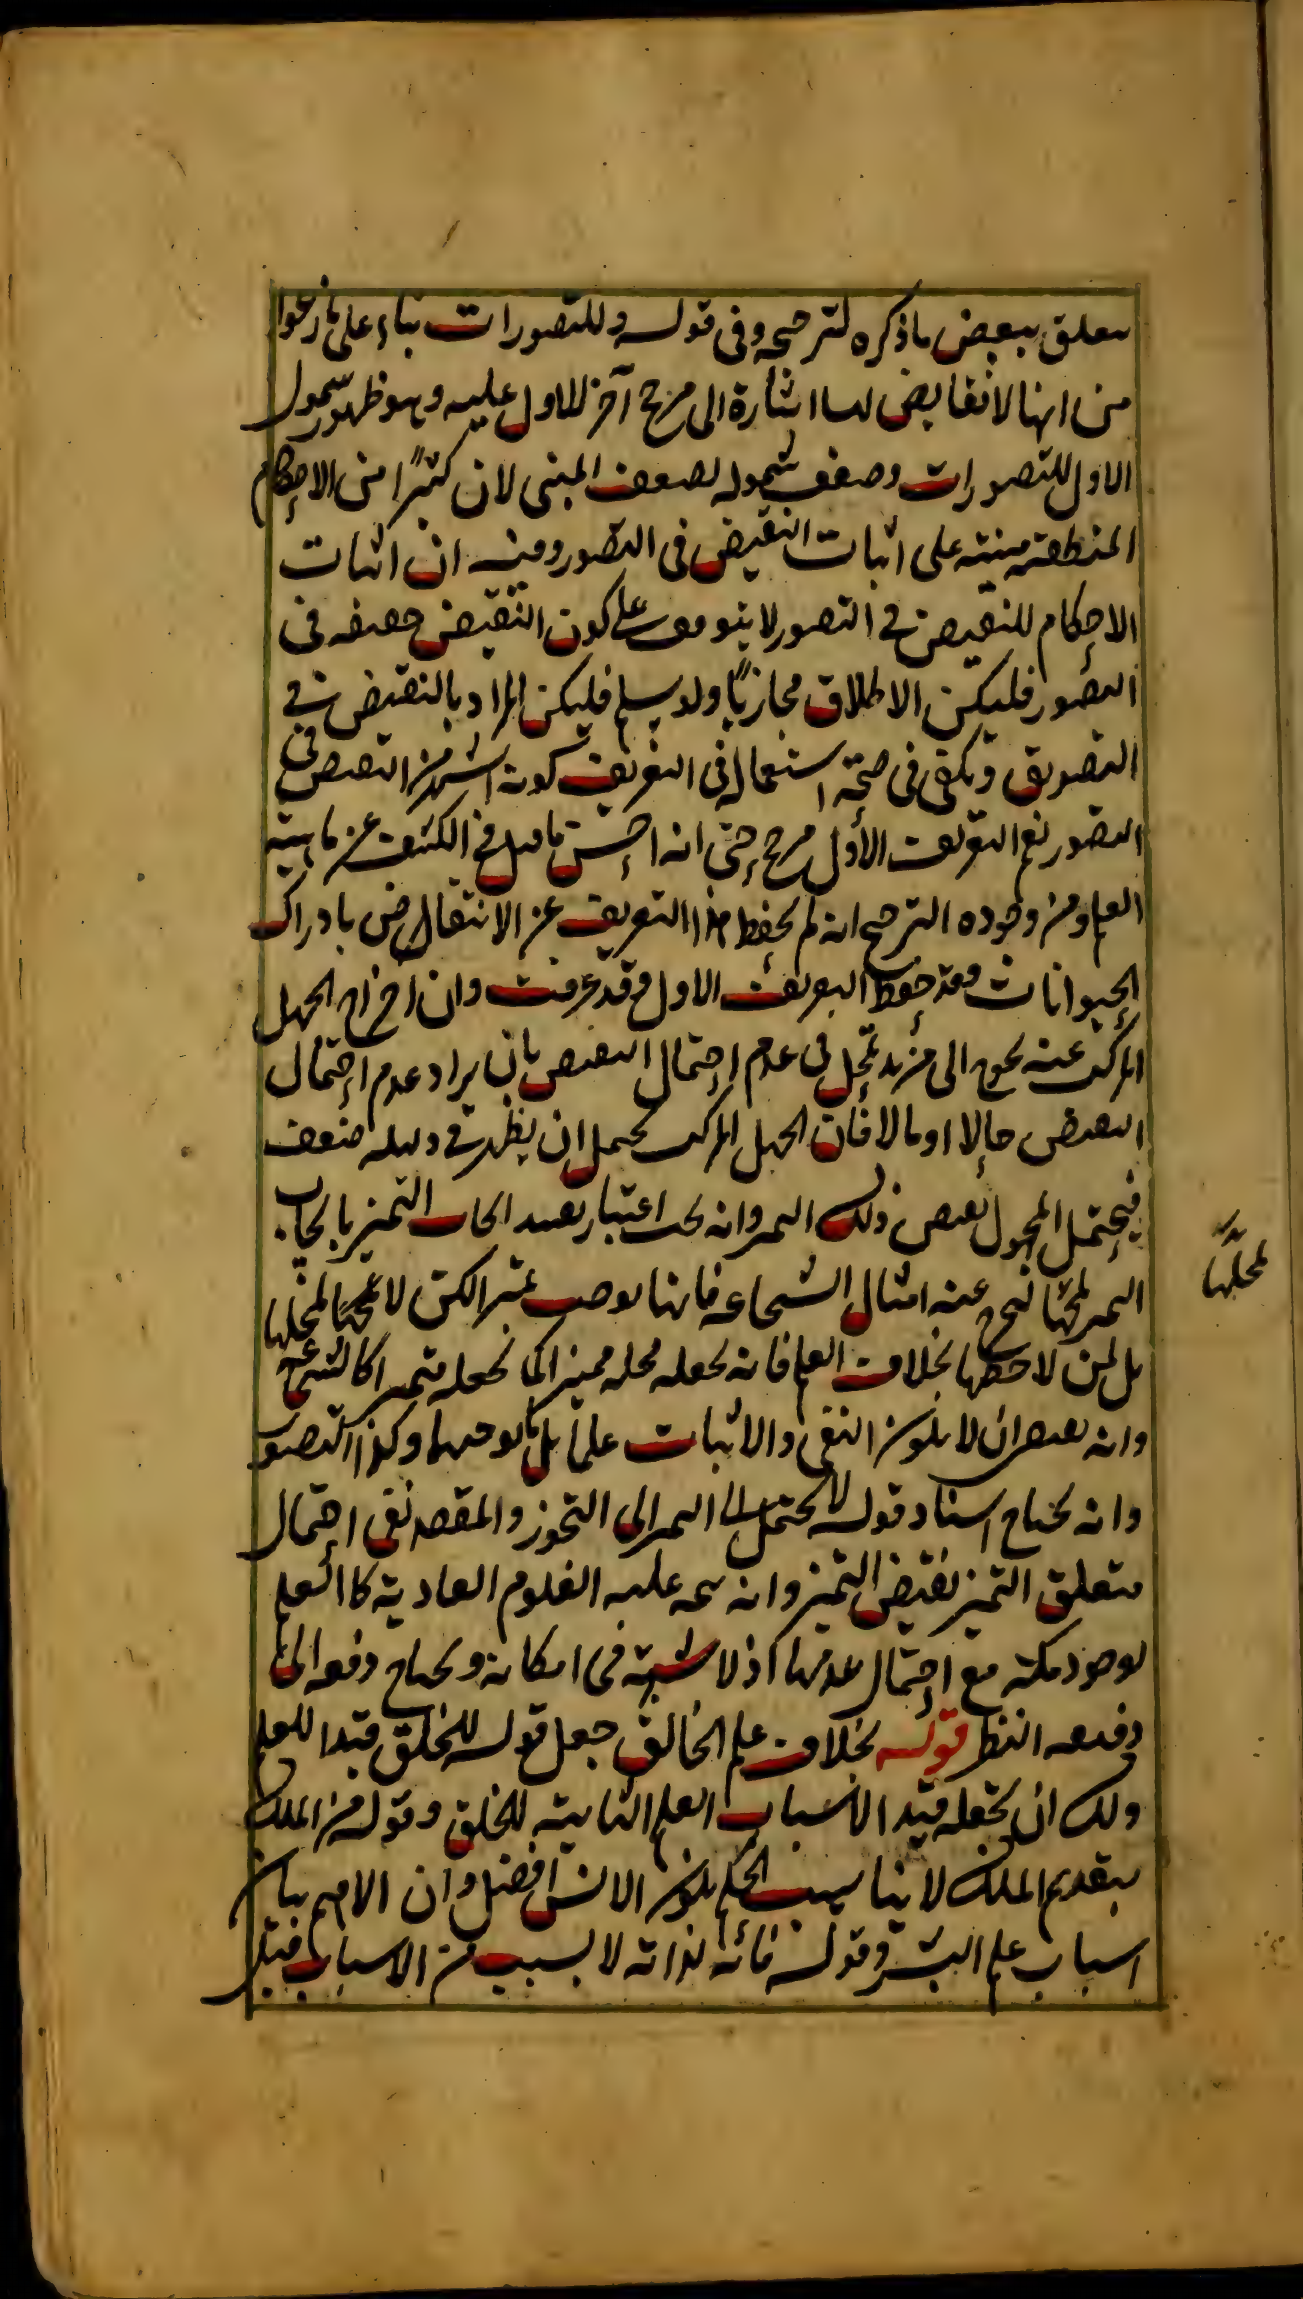 يتعلق ببعض ما ذكره لترجيحه وفى قوله وللتصورات بناء على ما زعموا
من انها لا نقايض لها اشارة الى مرجح آخر للاول عليه وهو ظهور شمول
الاول للتصورات وضعف شموله لضعف المبنى لان كثيرًا من الاحكام
المنطقية مبنية على اثبات النقيض فى التصور وفيه ان اثبات
الاحكام للنقيض فى التصور لا يتوقف على كون النقيض حقيقة فى
التصور فليكن الاطلاق مجازيًا ولو سلم فليكن المراد بالنقيض فى
التصديق ويكفى فى صحة استعماله فى التعريف كونه اشهر من النقيض فى
التصور نعم التعريف الأول مرجح حتى انه احسن ما قيل فى الكشف عن ماهية
العلم ومن وجوده الترجيح انه لم يحفظ هذا التعريف عن الانتقاض بادراك
الحيوانات وقد حفظ التعريف الاول وقد عرفت وان اخراج الجهل
المركب عنه يحوج الى مزيد تمحل فى عدم احتمال النقيض بان يراد عدم احتمال
النقيض حالا او مالا فان الجهل المركب يحتمل ان يظهر فى دليله ضعف
فيحتمل المجهول نقيض ذلك التميز وانه يجب اعتبار تقييد ايجاب التميز بايجاب
التميز لمحلها ليخرج عنه امثال الشجاعة فانها توجب تميز الكن لا لمحلها
بل لمن لاحظها بخلاف العلم فانه يجعله محله مميزا كما يجعله متميزا كالشجاعة
وانه يقتضى ان لا يكون النفى والاثبات علما بل ما يوجبهما وكذا التصور
وانه يحتاج اسناد قوله لا يحتمل الى التميز الى التجوز والمقصد نفى احتمال
متعلق التميز نقيض التميز وانه يتجه عليه العلوم العادية كالعلم
بوجود مكة مع احتمال عدمها اذ لا شبهة فى امكانه ويحتاج دفعه الى
دفعه النظر قوله بخلاف علم الخالق جعل قوله للخلق قيدا للعلم
ولك ان تجعله قيد الاسباب العلم الثابتة للخلق وقوله من الملك
بتقديم الملك لا يناسب الحكم بكون الانس افضل وان الاهم بيان
اسباب علم البشر وقوله فانه لذاته لا بسبب من الاسباب قيل
لمحلها